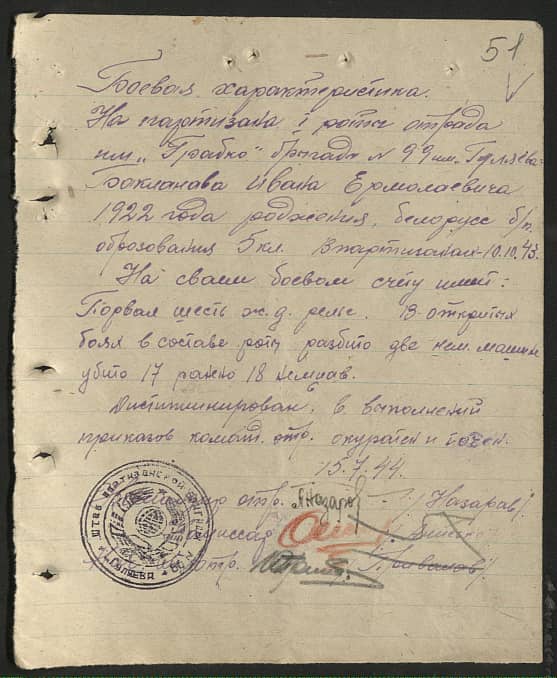 51
Боевая характеристика.
На партизана 1 роты отряда
им. „Грабко" бригады N 99 им. Гуляева
Бакланава Ивана Ермолаевича
1922 года рождения, белорусс б/п.
образования 5 кл. В партизанах 10.10.43.
На своем боевом счету имеет:
Порвал шесть ж.д. рельс. В открытых
боях в составе роты разбито две нем. машины
убито 17 ранено 18 немцав.
Дисциплинирован, в выполнений
приказов команд. отр. окуратен и точен.
15.7.44.
отр. Назаров /Назарав/.
комиссар
отр.
ШТАБ ПАРТИЗАНСКОЙ БРИГАДЫ
ГУЛЯЕВА БССР